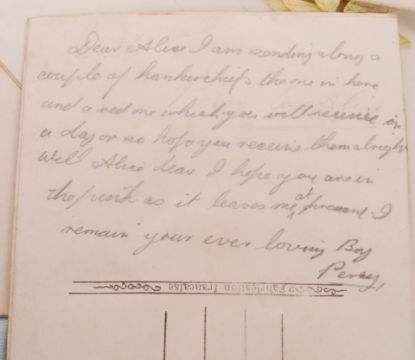 Dear Alice I am sending along a
couple of hankerchiefs the one in here
and a red one which you will receive in
a day or so hope you receive them alright
Well Alice dear I hope you are in
the pink as it leaves me at present. I
remain your ever loving Boy
Percy,
Fabrication française